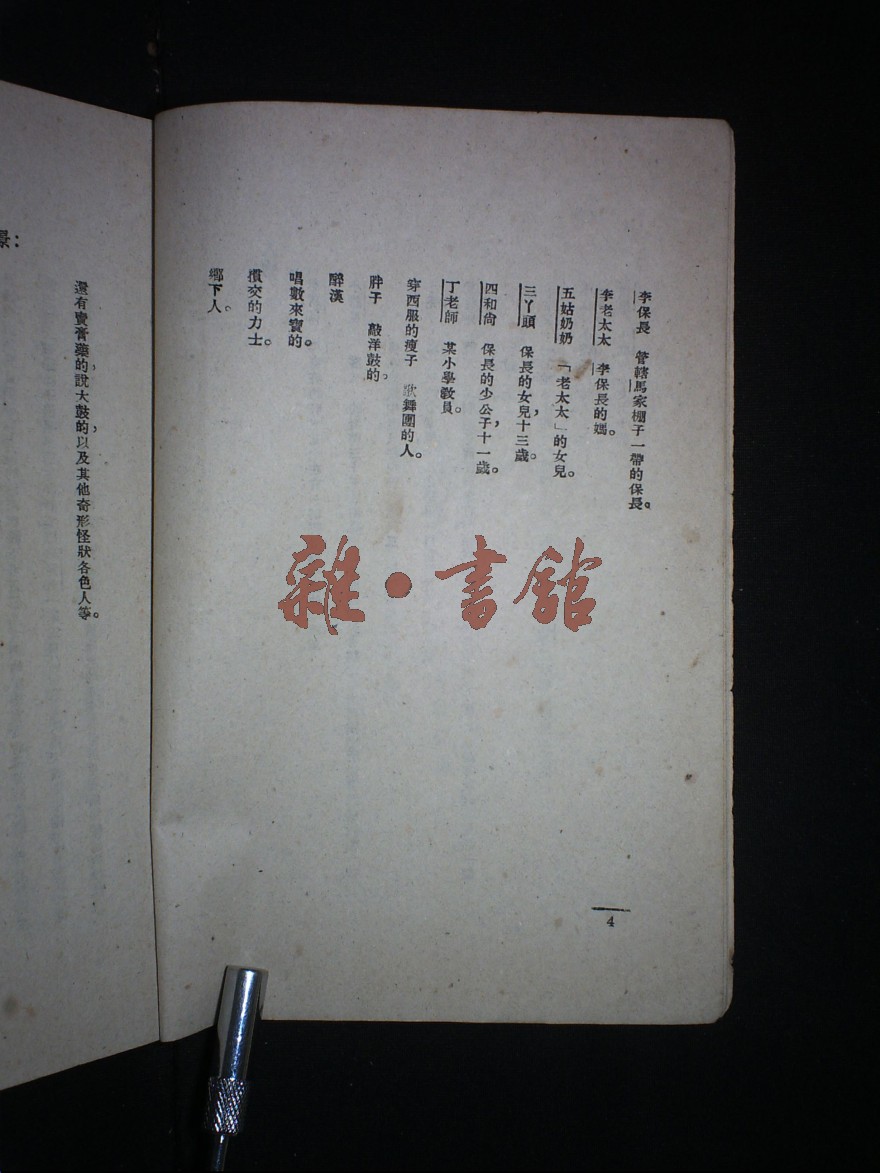 李保長　管轄馬家棚子一帶的保長。
李老太太　李保長的媽。
五姑奶奶　「老太太」的女兒。
三丫頭　保長的女兒，十三歲。
四和尙　保長的少公子，十一歲。
丁老師　某小學敎員。
穿西服的瘦子　歌舞團的人。
胖子　敲洋鼓的。
醉漢
唱數來寶的。
摜交的力士。
鄉下人。
4
還有賣膏藥的，說大鼓的，以及其他奇形怪狀各色人等。
景：
雜·書館